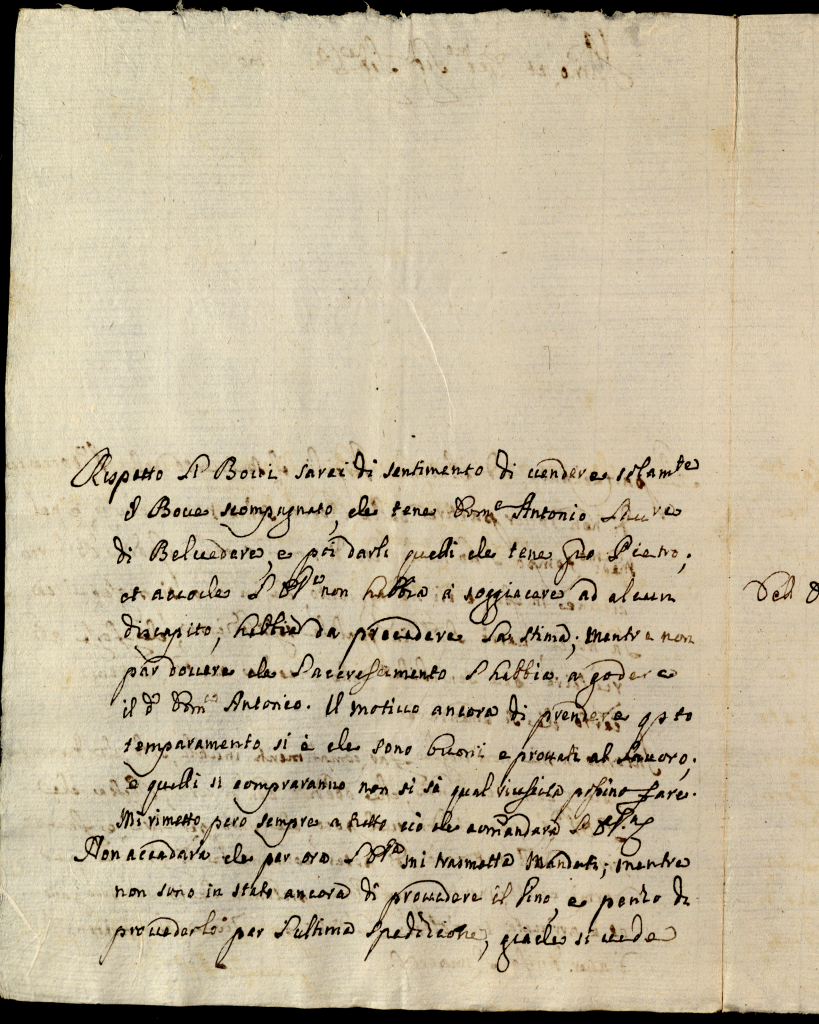 Rispetto A Bovi sarei di sentimento di vendere solam.te
il Bove scompagnato, che tene Dom.co Antonio
di Belvedere, e poi darli quelli che tene Pietro;
et accioche non habbia a soggiacere ad alcun
discapito, habbia da precedere la stima; mentre non
par dovere che l'accrescimento l'habbia a godere
il d.o Dom.co Antonio. Il motivo ancora di prendere q.sto
temparamento si è che sono buoni e provati al lavoro,
e quelli si compraranno non si sà qual riuscita possino fare.
Mi rimetto però sempre a tutto ciò che comandarà
Non accadarà che per ora mi trasmetta Mandati; mentre
non sono in stato ancora di provedere il Fino, e penso di
provederlo per l'ultima spedizione, giache si vede
Dell